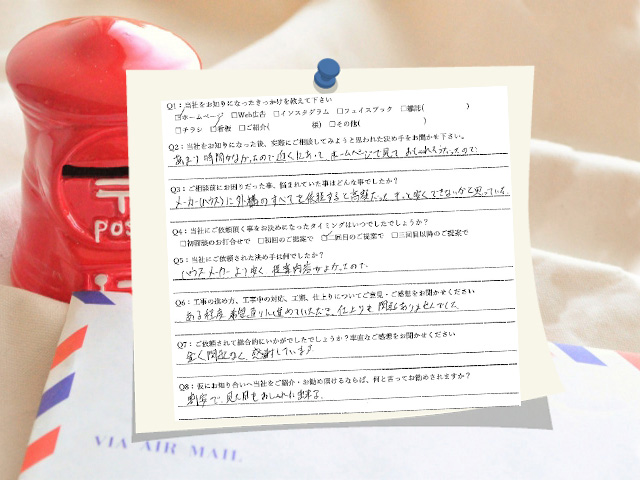 Q1：当社をお知りになったきっかけを教えて下さい
☑ホームページ □Web広告 □インスタグラム □フェイスブック □雑誌( )
□チラシ □看板 □ご紹介( 様) □その他( )
Q2：当社をお知りになった後、実際にご相談してみようと思われた決め手をお聞かせ下さい。
あまり時間がなかったので近くにあって ホームページで見て おしゃれそうだったので
Q3：ご相談前にお困りだった事、悩まれていた事はどんな事でしたか？
メーカー(ハウス)に外構のすべてを依頼すると高額だった。もっと安くできないかと思っている。
Q4：当社にご依頼頂く事をお決めになったタイミングはいつでしたでしょうか？
□初回談のお打合せで □初回のご提案で ☑二回目のご提案で □三回目以降のご提案で
Q5：当社にご依頼された決め手は何でしたか？
ハウスメーカーより安く 提案内容がよかったので
Q6：工事の進め方、工事中の対応、工期、仕上りについてご意見・ご感想をお聞かせください
ある程度 希望通りに進めていただき、仕上りも 問題ありませんでした
Q7：ご依頼されて総合的にいかがでしたでしょうか？率直なご感想をお聞かせください
全く問題なく、感謝しています
Q8：仮にお知り合いへ当社をご紹介・お勧め頂けるならば、何と言ってお勧めされますか？
割安で、見た目もおしゃれに出来る。
POS
VIA AIR MAIL